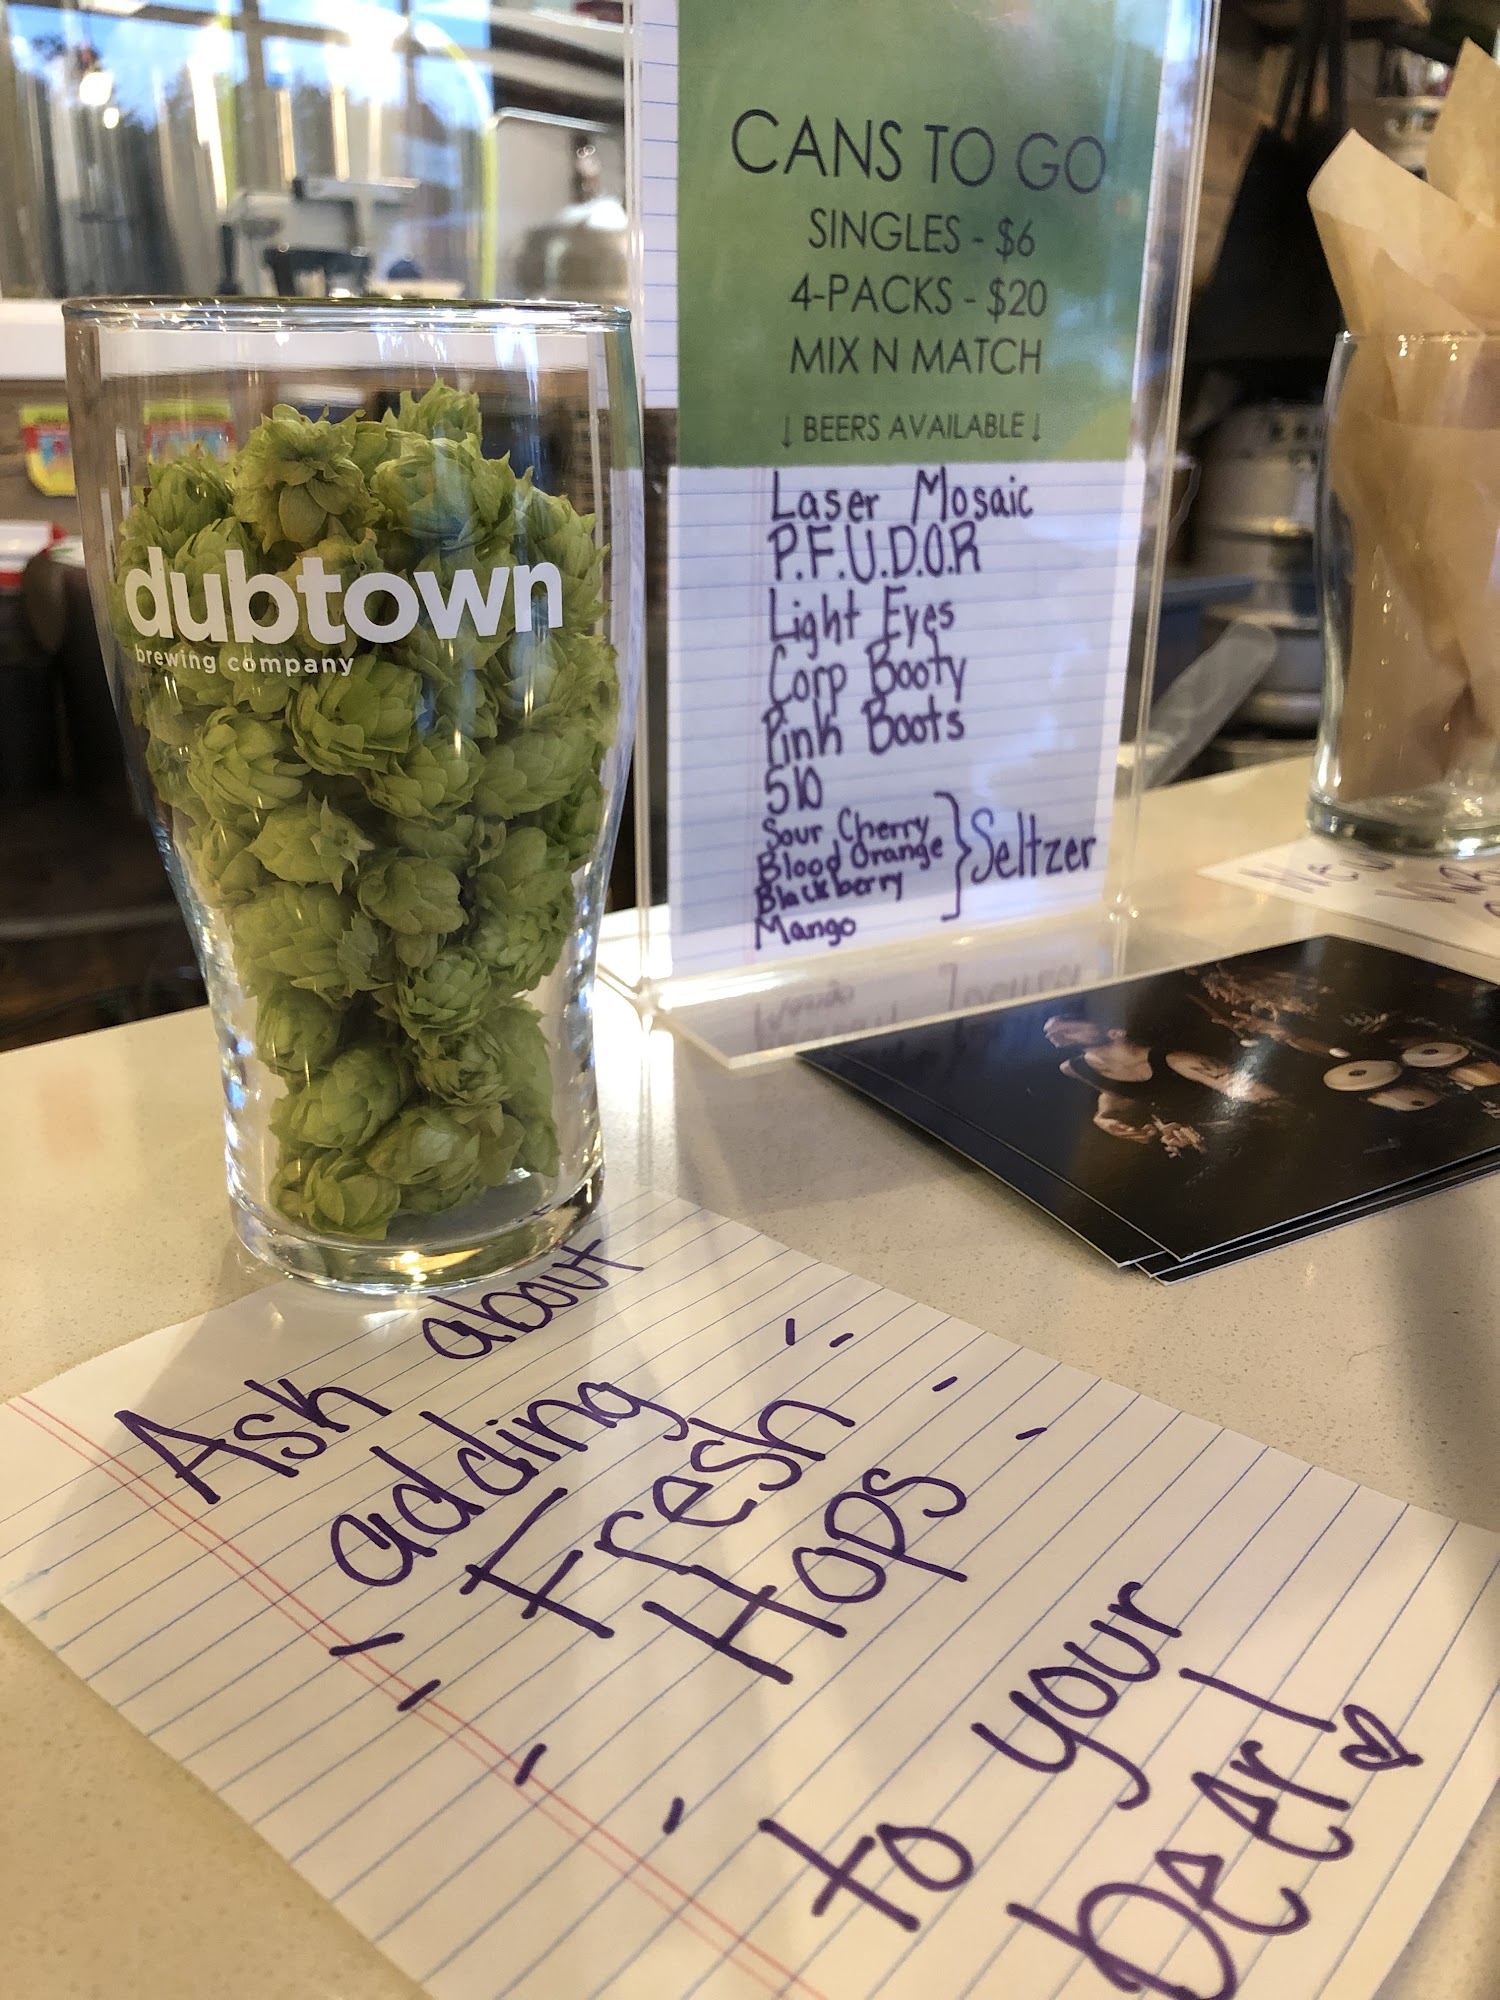 CANS TO GO
SINGLES - $6
4-PACKS - $20
MIX N MATCH
↓ BEERS AVAILABLE ↓
Laser Mosaic
P.F.U.D.O.R
Light Eyes
Corp Booty
Pink Boots
510
Sour Cherry
Blood Orange
Blackberry
Mango
} Seltzer
dubtown
brewing company
Ask about
adding
Fresh
Hops
to your
beer!